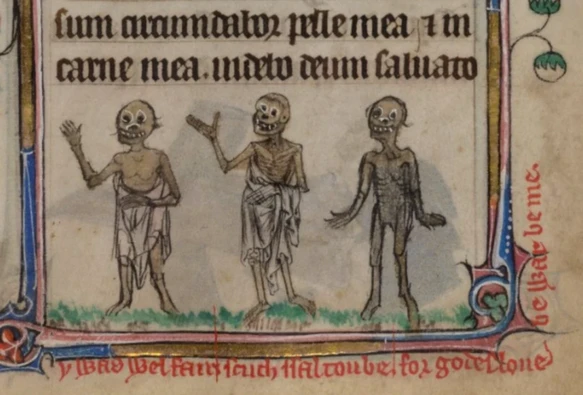 sum circundabor pelle mea ⁊ in
carne mea. uidebo deum saluato
y was wel fair scuch ssaltou be. for godes loue
be war be me.